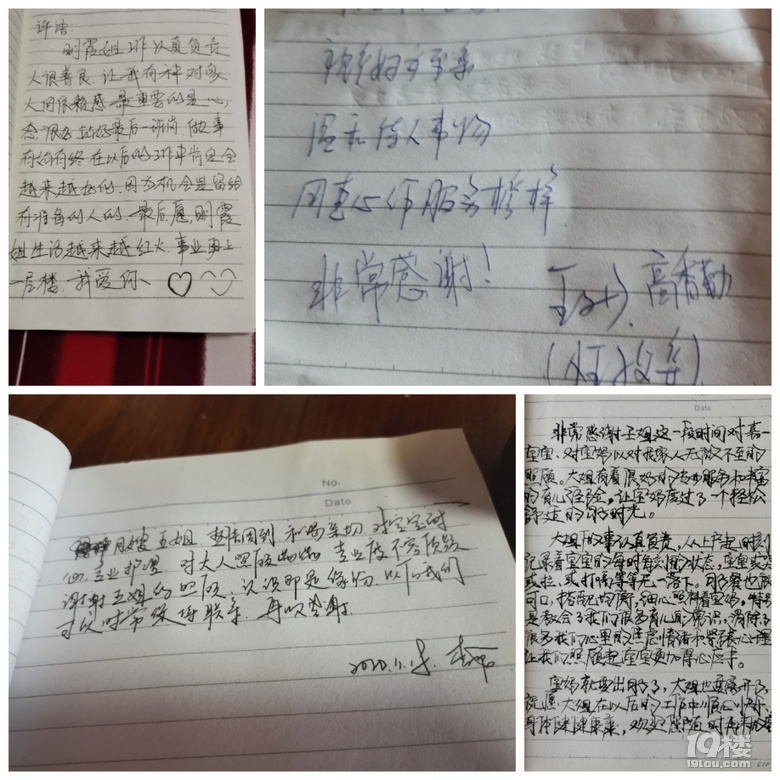 评语:
明霞姐工作认真负责
人很善良,让我有种对家
人的依赖感.最重要的是心
态很好,站好最后一班岗.做事
有始有终.在以后的工作中肯定会
越来越好的.因为机会是留给
有准备的人的.最后愿,明霞
姐生活越来越红火.事业更上
一层楼.我爱你、♡
温和待人事物
用真心作服务榜样
非常感谢!
高香勤
No.
Date
月嫂王姐 和蔼亲切,对宝宝耐
心,专业护理 对大人照顾 专业度不容质疑
谢谢王姐的照顾,认识即是缘份.以后我们
可以时常 联系,再次感谢.
2020.11.
Date
非常感谢王姐这一段时间对喜
宝宝、对宝妈以对我家人无微不至的
照顾。大姐有着很好的专业服务和丰富
的育儿经验,让宝妈度过了一个轻松
舒适的 时光。
大姐做事认真负责,从上户起时刻
记录着宝宝的每时每刻的状态,宝宝或
或拉,或打嗝等等无一落下。月子餐也很
可口,搭配均衡,细心照料着宝妈,特别
是教会了我们很多育儿的常识,消除了
很多我们心里的焦虑情绪和紧张心理
让我们照顾起宝宝更加得心应手。
宝妈就要出月了,大姐也要离开了,
祝愿大姐在以后的工作中顺心顺
身体健健康康,欢迎 随时再来
19楼
19lou.com